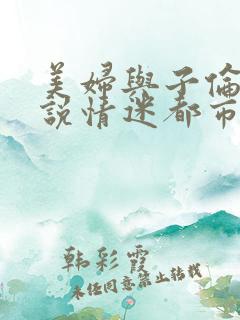 美婦與子倫
說情迷都市
韩彩霞
未经同意禁止转载